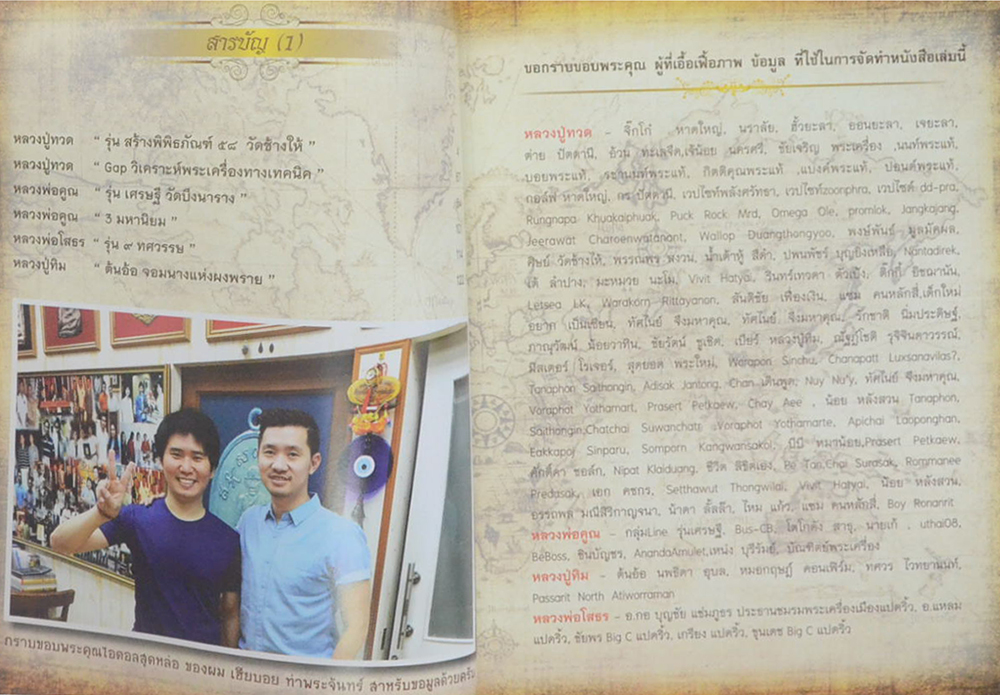 สารบัญ (1)
หลวงปู่ทวด “ รุ่น สร้างพิพิธภัณฑ์ ๕๘ วัดช้างให้ ”
หลวงปู่ทวด “ Gap วิเคราะห์พระเครื่องทางเทคนิค ”
หลวงพ่อคูณ “ รุ่น เศรษฐี วัดบึงนาราง ”
หลวงพ่อคูณ “ 3 มหานิยม ”
หลวงพ่อโสธร “ รุ่น ๙ ทศวรรษ ”
หลวงปู่ทิม “ ต้นอ้อ จอมนางแห่งผงพราย ”
กราบขอบพระคุณไอดอลสุดหล่อ ของผม เฮียบอย ท่าพระจันทร์ สำหรับขอมูลด้วยครับ
ขอกราบขอบพระคุณ ผู้ที่เอื้อเฟื้อภาพ ข้อมูล ที่ใช้ในการจัดทำหนังสือเล่มนี้
หลวงปู่ทวด – จิ๊กโก๋ หาดใหญ่, นราลัย, ฮั้วยะลา, ออนยะลา, เจยะลา,
ต่าย ปัตตานี, อ้วน ทะเลจืด,เจ้น้อย นครศรี, ชัยเจริญ พระเครื่อง ,นนท์พระแท้,
บอยพระแท้, ระนานนท์พระแท้, กิตติคุณพระแท้ ,แบงค์พระแท้, ปอนด์พระแท้,
กอล์ฟ หาดใหญ่, กร ปัตตานี, เวปไซท์พลังศรัทธา, เวปไซท์zoonphra, เวปไซด์ dd-pra,
Rungnapa Khuakaiphuak, Puck Rock Mrd, Omega Ole, promlok, Jangkajang,
Jeerawat Charoenwatanant, Wallop Duangthongyoo, พงษ์พันธ์ มูลมัคผล,
ศิษย์ วัดช้างให้, พรรณพร พงวน, น้ำเต้าหู้ สีดำ, ปพนพัชร์ บุญยิ่งเหลือ, Nantadirek,
ลำปาง, มะหมวย นะโม, Vivit Hatyai, วินทร์เทวดา ตัวเบ้ง, ติ๊กกี่ อิชฌานัน,
Letsea LK, Warakorn Rittayanon, ลันติชัย เฟื่องเงิน, แชม คนหลักสี่,เด็กใหม่
อยาก เป็นเซียน, ทัศไนย์ จึงมหาคุณ, ทัศไนย์ จึงมหาคุณ, รักชาติ นิ่มประดิษฐ์,
ภาณุวัฒน์ น้อยวาทิน, ชัยรัตน์ ชูเชิด, เบียร์ หลวงปู่ทิม, ณัฐภู์โชติ รุจิจินดาวรรณ์,
มิสเตอร์ โรเจอร์, สุดยอด พระใหม่, Warapon Sinchu, Chanapatt Luxsanavilas7,
Tanaphon Saithongin, Adisak Jantong, Chan เดินพูด, Nuy Nu'y, ทัศไนย์ จึงมหาคุณ,
Voraphot Yothamart, Prasert Petkaew, Chay Aee , น้อย หลังสวน Tanaphon,
Saithongin,Chatchai Suwanchatr ,Voraphot Yothamarte, Apichai Laoponghan,
Eakkapol Sinparu, Somporn Kangwansakol, บีบี หมาน้อย,Prasert Petkaew,
ศักดิ์ดา ชอล์ก, Nipat Klaiduang, ชีวิต ลิขิตเอง, Pe Tan,Chai Surasak, Rommanee
Predasak, เอก คชกร, Setthawut Thongwilai, Vivit Hatyai, น้อย หลังสวน,
อรรถพล มณีสิริกาญจนา, น้าดา ลั้ลล้า, ไหม แก้ว, แชม คนหลักสี่, Boy Ronanrit
หลวงพ่อคูณ – กลุ่มLine รุ่นเศรษฐี, Bus-CB, โตโกดัง สาธุ, นายเก้ , uthai08,
BeBoss, ชินบัญชร, AnandaAmulet,เหน่ง บุรีรัมย์, บัณฑิตย์พระเครื่อง
หลวงปู่ทิม – ต้นอ้อ นพธิดา อุบล, หมอกฤษฎ์ คอนเฟิร์ม, ทศวร ไวทยานนท์,
Passarit North Atiworraman
หลวงพ่อโสธร – อ.กอ บุญชัย แช่มภูธร ประธานชมรมพระเครื่องเมืองแปดริ้ว, อ.แหลม
แปดริ้ว, ชัยพร Big C แปดริ้ว, เกรียง แปดริ้ว, ขุนเดช Big C แปดริ้ว